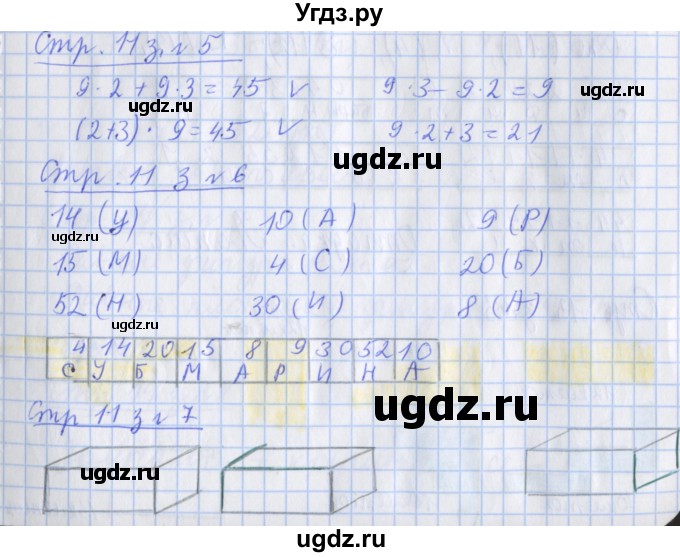 Угдз.ру
Стр. 11 з. № 5
9 · 2 + 9 · 3 = 45 V 9 · 3 - 9 · 2 = 9
ugdz.ru ugdz.ru
(2+3) · 9 = 45 V 9 · 2 + 3 = 21
ugdz.ru
Стр. 11 з № 6
14 (У) 10 (А) 9 (Р)
ugdz.ru
15 (М) 4 (С) 20 (Б)
ugdz.ru
52 (Н) 30 (И) 8 (А)
ugdz.ru
4 14 20 15 8 9 30 52 10
С У Б М А Р И Н А
ugdz.ru
Стр 11 з № 7
ugdz.ru
ugdz.ru
ugdz.ru